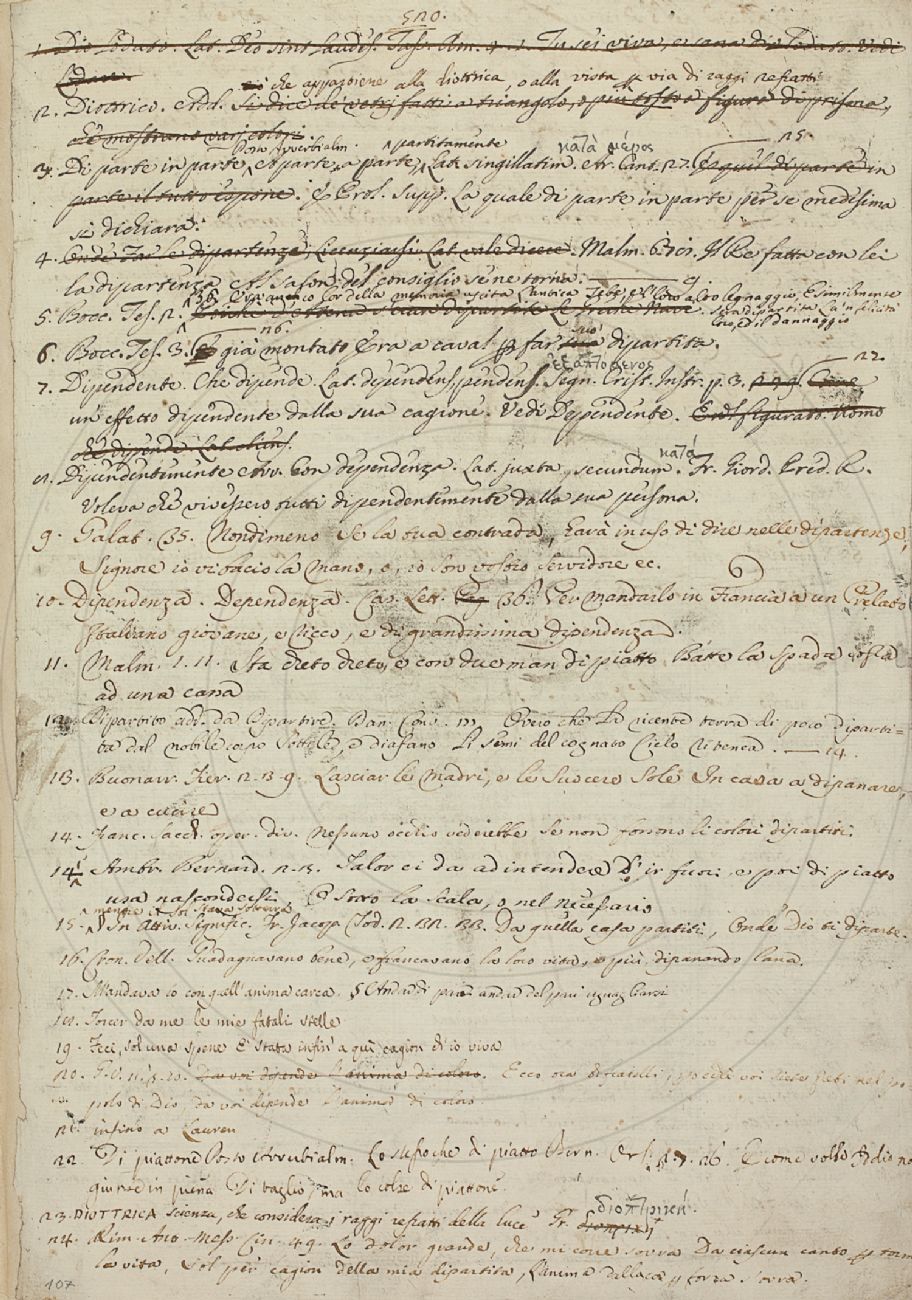 520.
1. Dio Lodato. Lat. Deo sint laudes. Tass. Am. 4. 1. Tu sei viva, e sana dio lodato. Vedi
Lodare.
che appartiene alla diottrica, o alla vista p via di raggi refratti
2. Diottrico. Add. Si dice de vetri fatti a triangolo, o piu tosto a figura di prisma,
che mostrano varj colori.
Posto Avverbialm. partitamente κατὰ μέρος 25.
3. Di parte in parte, e a parte, a parte, Lat. singillatim. Ar. Cant. 27. di parte in
parte il tutto espone. § Prol. Supp. La quale di parte in parte per se medesima
si dichiara.
4. Onde Far le dipartenza, Licenziarsi. Lat. vale dicere. Malm. Il Re fatta con lei
la dipartenza Al del consiglio se ne torna. 9
5. Bocc. Tes. 12. della memoria uscita L'antica Tebe e il loro alto legnaggio, E similmente
sen dipartita La nobiltà
Loro, ed il dannaggio
26.
6. Bocc. Tes. 3. già montato Era a caval p far dipartita.
ἐξαπτόμενος 22.
7. Dipendente. Che dipende. Lat. dependens, pendens. Segn. Crist. Instr. p. 3. Come
un'effetto dipendente dalla sua cagione. Vedi Dependente. Add. figurato. Uomo
che dipende Lat. cliens.
κατά
8. Dipendentemente Avv. Con dependenza. Lat. juxta, secundum. Fr. Giord. Pred. R.
Voleva che vivessero tutti dipendentemente dalla sua persona.
9. Galat. 35. Nondimeno Se la tua contrada, havrà in uso di dire nelle dipartenze,
Signore io vi bacio la mano, o, io son vostro servidore ec.
10. Dipendenza. Dependenza. Cas. Lett. 36. Per mandarlo in Francia a un Prelato
Italiano giovane, e ricco, e di grandissima dipendenza.
11. Malm. 1. 11. Sta dreto dreto, e con due man di piatto Batte la spada sopra
ad una cassa
12. Dipartito add. da Dipartire. Dan. Conv. Overo che La recente terra di poco diparti-
ta dal nobile corpo sottile, e diafano Li semi del cognato Cielo ritenea. — 14.
13. Buonarr. Fier. 2. 3. 9. Lasciar le Madri, e le Suocere sole In casa a dipanare,
e a cucire
14. Franc. Sacch. oper. div. Nessuno occhio vederebbe se non fossono li colori dipartiti.
14½ Ambr. Bernard. 2. 3. Talor ci da ad intendere D'ir fuori, e poi di piatto
usa nascondersi, O sotto la scala, o nel necessario
15. § In Attiv. Signific. Fr. Jacop. Tod. 2. 32. 33. Da quella casa partiti, Onde Dio ti diparte.
16. Cron. Vell. Guadagnavano bene, e francavano la loro vita, e più, dipanando lana.
17. Mandava io con quell'anima carca.
18. Torcer da me le mie fatali stelle
19. Feci, sol una spene È stata infin' a qui cagion ch'io viva
20. G. V. 11. 3. 20. Da voi dipende l'anima di coloro. Ecco ora o fratelli, voi siete preti nel po-
polo di Dio, da voi dipende l'anima di coloro.
21. infino a Lauren
22. Di piattone Posto Avverbialm. Lo stesso che di piatto Bern. Orl. 1. 7. 26. E come volse Iddio
giunse in piena Di taglio, ma lo colse di piattone.
διοπτρική.
23. DIOTTRICA Scienza, che considera i raggi refratti della luce Gr.
24. Rim. Ant. Mess. Cin. 49. Lo dolor grande, che mi corre sovra Da ciascun canto p torm
la vita, Sol per cagion della mia dipartita, L'anima p forza
107